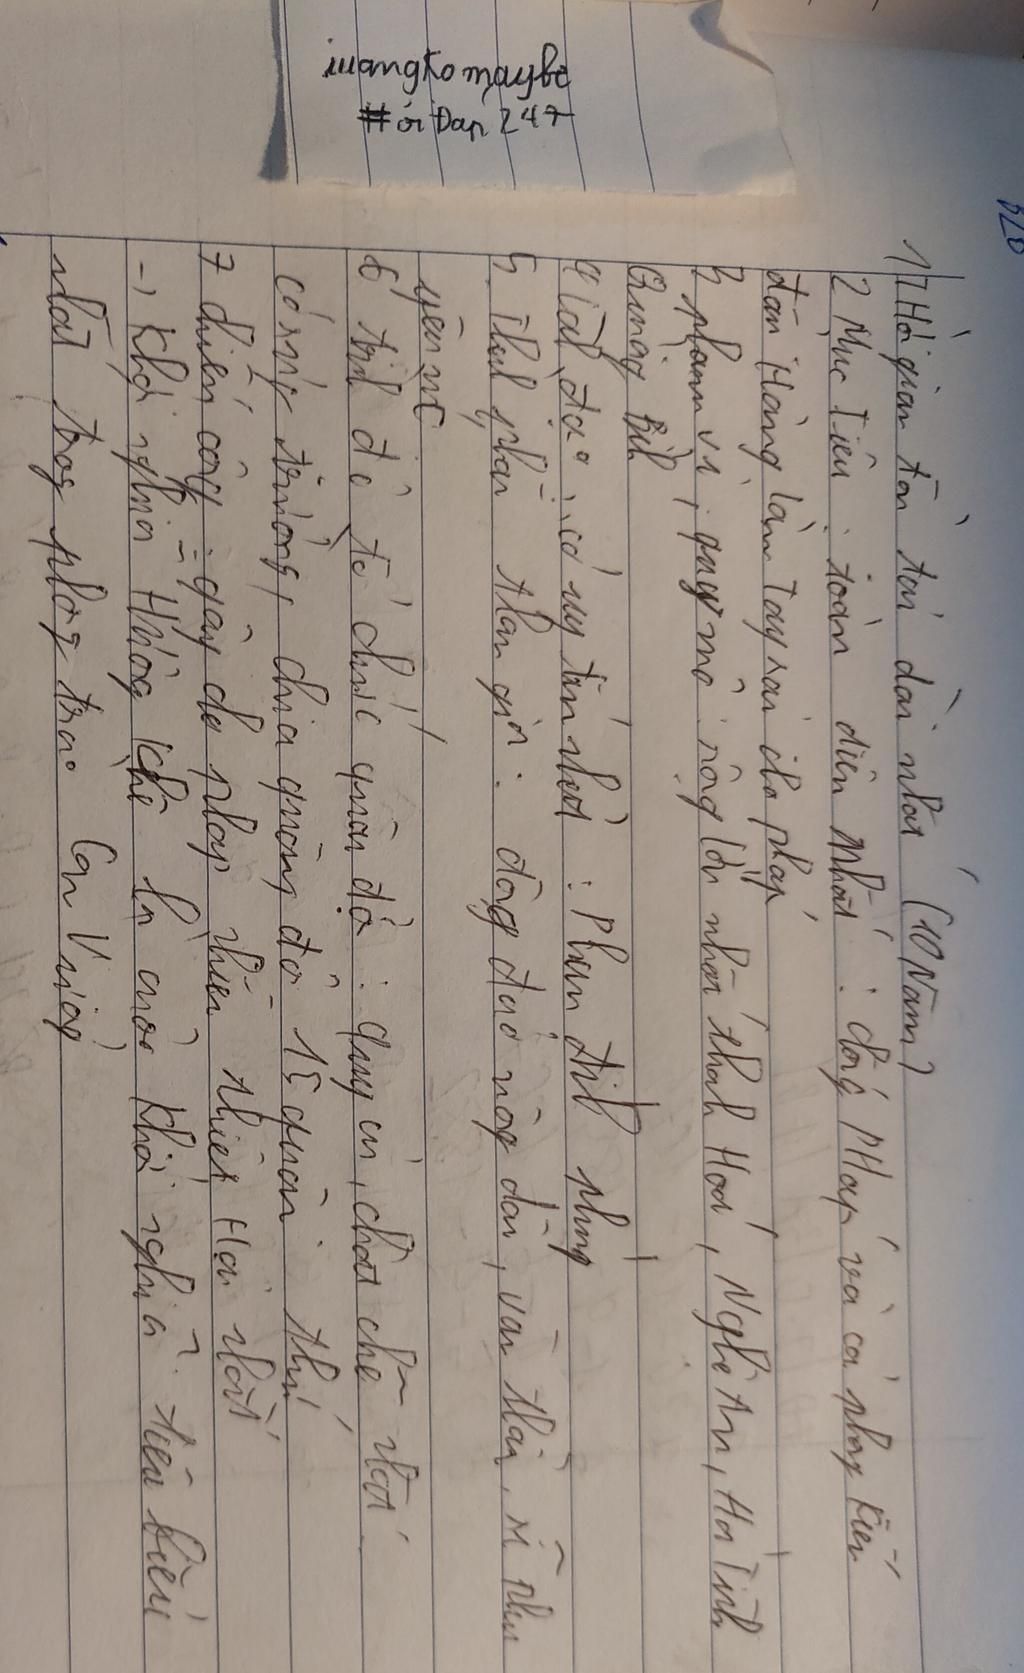 iuangkomaybe
#ỏi Đáp 247
1, Thời gian tồn tại dài nhất (10 Năm)
2 Mục Tiêu : toàn diện nhất : chống PHáp và cả phog kiến
đầu Hàng làm Tay sai cho pháp
3 phạm vi, quy mô : rộng lớn nhất thah Hoá, Nghệ An, Hà Tĩnh
Quảng Bìh
4 lãh đạo : có uy tín nhất : Phan đìh phùng
5, Thàh phần tham gia : đông đảo nôg dân, văn thân, sĩ phu
yêu nc
6 trìh độ tổ chức quân đội : quy củ, chặt chẽ nhất
có
trường, chia quân đội 15 quân thứ
7 chiến công : gây cho pháp nhiều thiệt Hại nhất
-> Khởi nghĩa Hương Khê là cuộc khởi nghĩa tiêu biểu
nhất trog phog trào Cần Vương